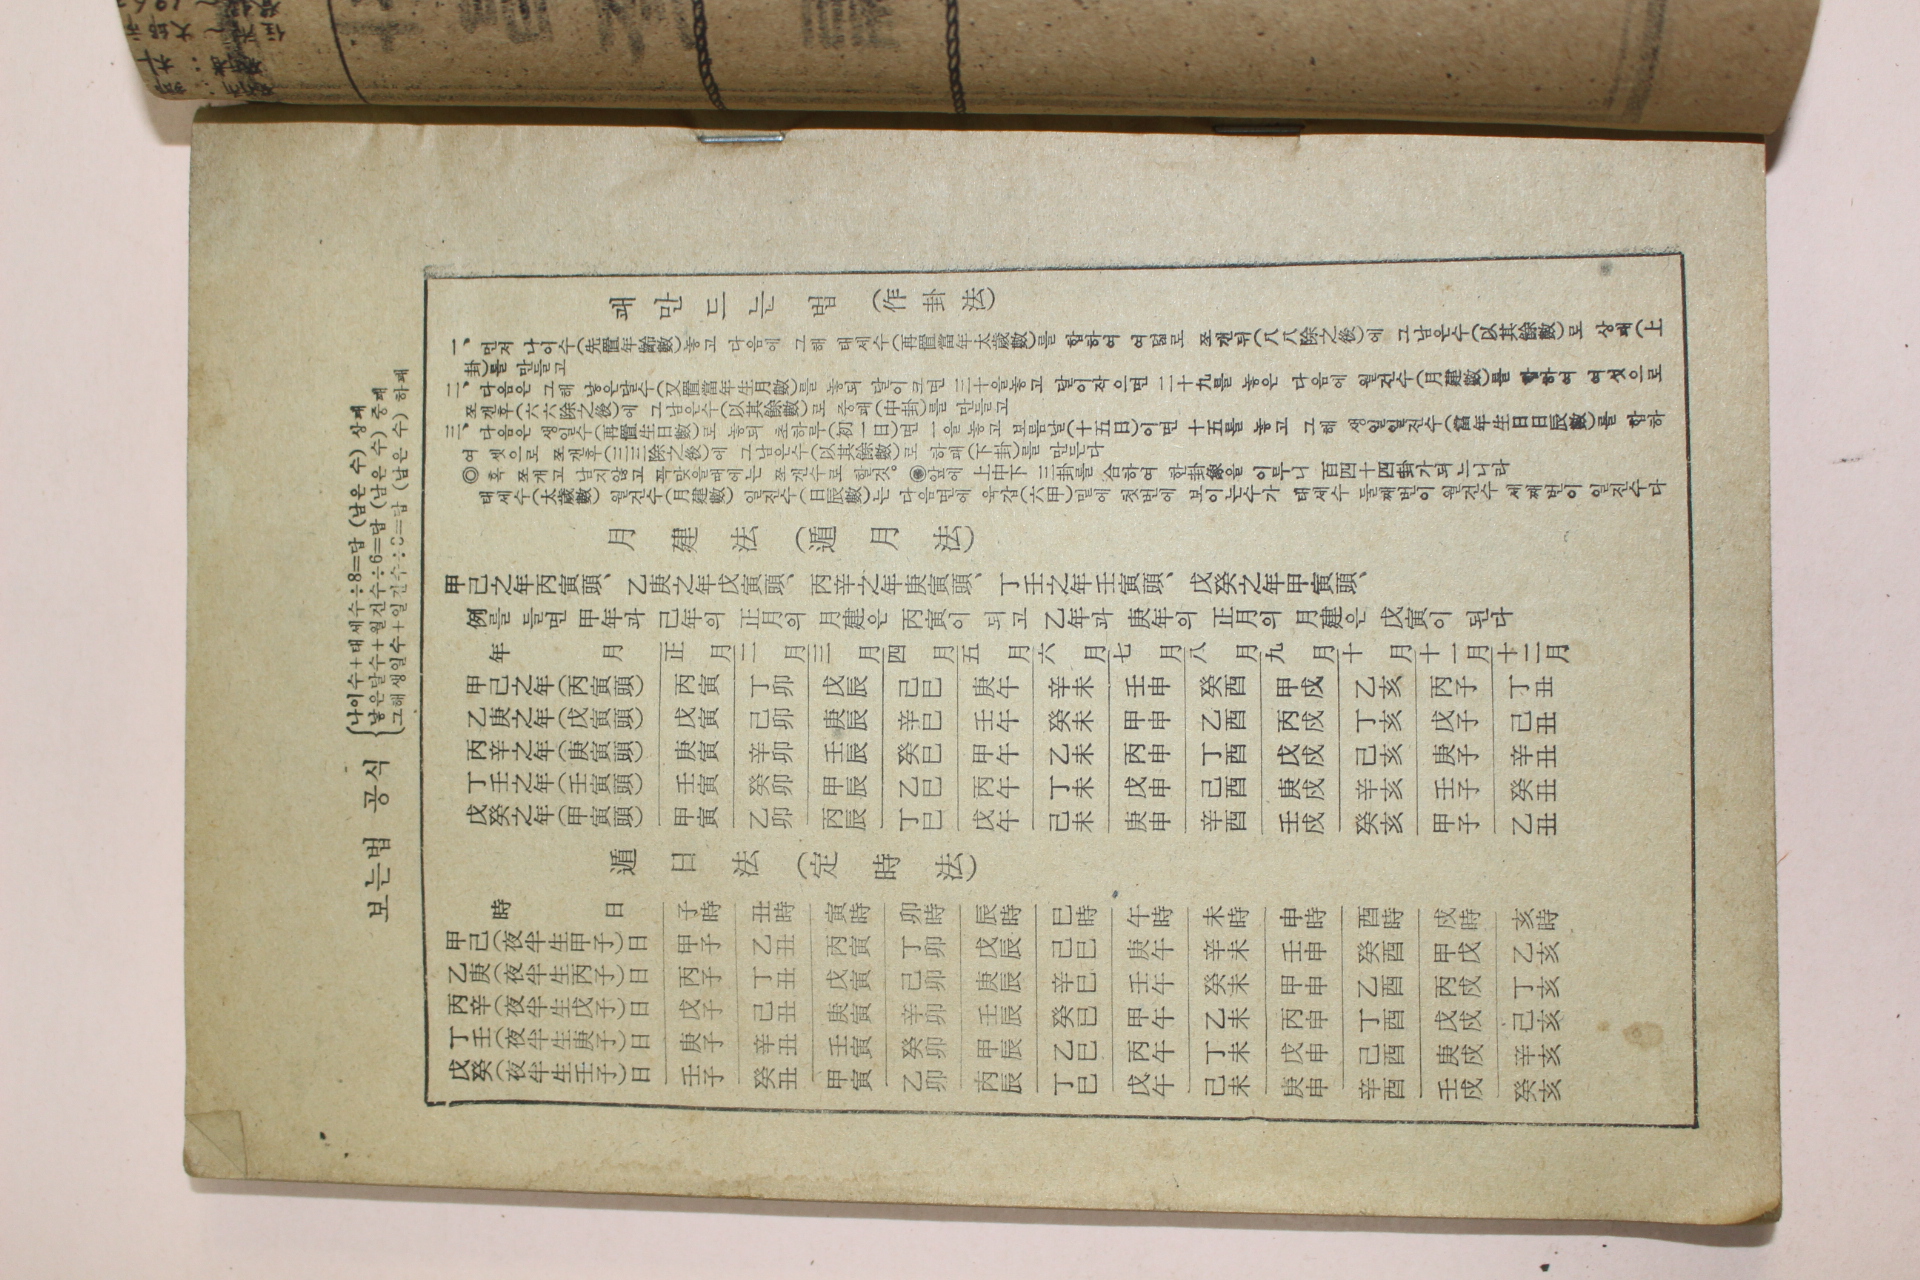 보는법 공식
나이수+태세수÷8=답 (남은 수) 상괘
낳은달수+월건수÷6=답 (남은 수) 중괘
그해생일수+일진수÷3=답 (남은 수) 하괘
괘 만 드 는 법 (作 卦 法)
一、먼저 나이수(先置年齡數)놓고 다음에 그해 태세수(再置當年太歲數)를 합하여 여덟로 쪼갠뒤(八八除之後)에 그남은수(以其餘數)로 상괘(上
卦)를 만들고
二、다음은 그해 낳은달수(又置當年生月數)를 놓되 달이크면 三十을놓고 달이작으면 二十九를 놓은 다음에 월건수(月建數)를 합하여 여섯으로
쪼갠후(六六除之後)에 그남은수(以其餘數)로 중괘(中卦)를 만들고
三、다음은 생일수(再置生日數)로 놓되 초하루(初一日)면 一을 놓고 보름날(十五日)이면 十五를 놓고 그해 생일일진수(當年生日日辰數)를 합하
여 셋으로 쪼갠후(三三除之後)에 그남은수(以其餘數)로 하괘(下卦)를 만든다
◎혹 쪼개고 남지않고 꼭맞을때에는 쪼갠수로 할것。◉앞에 上中下 三卦를 合하여 한卦象을 이루니 百四十四卦가되느니라
태세수(太歲數) 월건수(月建數) 일진수(日辰數)는 다음면에 육갑(六甲)밑에 첫번에 보이는수가 태세수 둘째번이 월건수 세째번이 일진수다
月 建 法 (遁 月 法)
甲己之年丙寅頭、乙庚之年戊寅頭、丙辛之年庚寅頭、丁壬之年壬寅頭、戊癸之年甲寅頭、
例를 들면 甲年과 己年의 正月의 月建은 丙寅이 되고 乙年과 庚年의 正月의 月建은 戊寅이 된다
年 月 正月 二月 三月 四月 五月 六月 七月 八月 九月 十月 十一月 十二月
甲己之年(丙寅頭) 丙寅 丁卯 戊辰 己巳 庚午 辛未 壬申 癸酉 甲戌 乙亥 丙子 丁丑
乙庚之年(戊寅頭) 戊寅 己卯 庚辰 辛巳 壬午 癸未 甲申 乙酉 丙戌 丁亥 戊子 己丑
丙辛之年(庚寅頭) 庚寅 辛卯 壬辰 癸巳 甲午 乙未 丙申 丁酉 戊戌 己亥 庚子 辛丑
丁壬之年(壬寅頭) 壬寅 癸卯 甲辰 乙巳 丙午 丁未 戊申 己酉 庚戌 辛亥 壬子 癸丑
戊癸之年(甲寅頭) 甲寅 乙卯 丙辰 丁巳 戊午 己未 庚申 辛酉 壬戌 癸亥 甲子 乙丑
遁 日 法 (定 時 法)
時 日 子時 丑時 寅時 卯時 辰時 巳時 午時 未時 申時 酉時 戌時 亥時
甲己(夜半生甲子)日 甲子 乙丑 丙寅 丁卯 戊辰 己巳 庚午 辛未 壬申 癸酉 甲戌 乙亥
乙庚(夜半生丙子)日 丙子 丁丑 戊寅 己卯 庚辰 辛巳 壬午 癸未 甲申 乙酉 丙戌 丁亥
丙辛(夜半生戊子)日 戊子 己丑 庚寅 辛卯 壬辰 癸巳 甲午 乙未 丙申 丁酉 戊戌 己亥
丁壬(夜半生庚子)日 庚子 辛丑 壬寅 癸卯 甲辰 乙巳 丙午 丁未 戊申 己酉 庚戌 辛亥
戊癸(夜半生壬子)日 壬子 癸丑 甲寅 乙卯 丙辰 丁巳 戊午 己未 庚申 辛酉 壬戌 癸亥